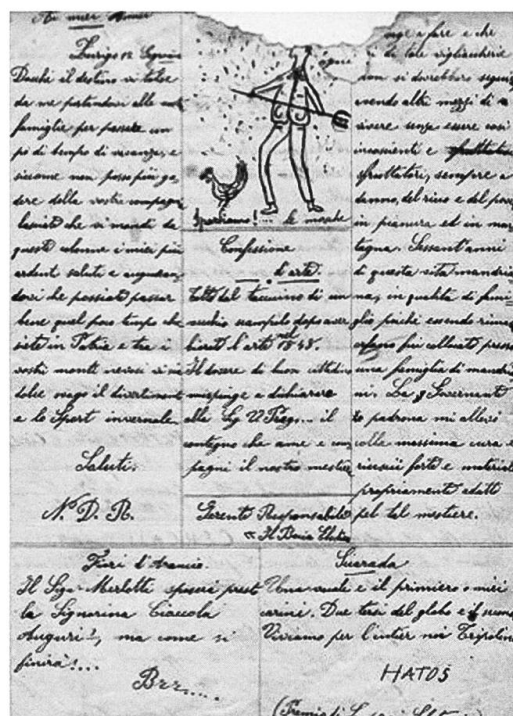 Ai miei Amici
Zurigo 12
Dacchè il destino vi tolse
da me portandovi alle
famiglie per passare un
pò di tempo di vacanze, e
siccome non posso più go
dere della vostra compagn
lasciate che vi mandi da
queste colonne i miei più
ardenti saluti e auguran
dovi che possiate passar
bene quel poco tempo che
siete in Patria e tra i
vostri monti nevosi vi
dolce svago il divertimento
e lo Sport invernale.
Saluti.
N. D. R.
ogni
Spariamo!... le mosche
Confessione
d'arte.
tolto dal taccuino di un
vecchio scampolo dopo aver
l'arte 1848.
Il dovere di buon cittadino
mi spinge a dichiarare
alla Sig. V Preg... il
contegno che ame e com
pagni il nostro mestiere
Gerente Responsabile
Il Boia
a fare e che
di tale vigliaccherie
non si dovrebbero
avendo altri mezzi di
vivere senza essere così
incoscienti e
sfruttatori, sempre a
danno, del ricco e del pove
in pianura ed in mon
tagna. Sessent'anni
di questa vita mandria
na, in qualità di fami
glio poichè essendo rima
orfano fui collocato presso
una famiglia di mandria
ni. La Governante
padrona mi allevò
colla massima cura e
riuscii forte e
propriamente adatto
pel tal mestiere.
Fiori d'Arancio.
Il Sig. Merlotti sposerà prest
la Signorina Ciaccola
Auguri!, ma come si
finirà!...
Brr.....
Sciarada
Una vocale e il primiero
carini. Due tesi del globo e il
Viviamo per l'intier noi
HATOS